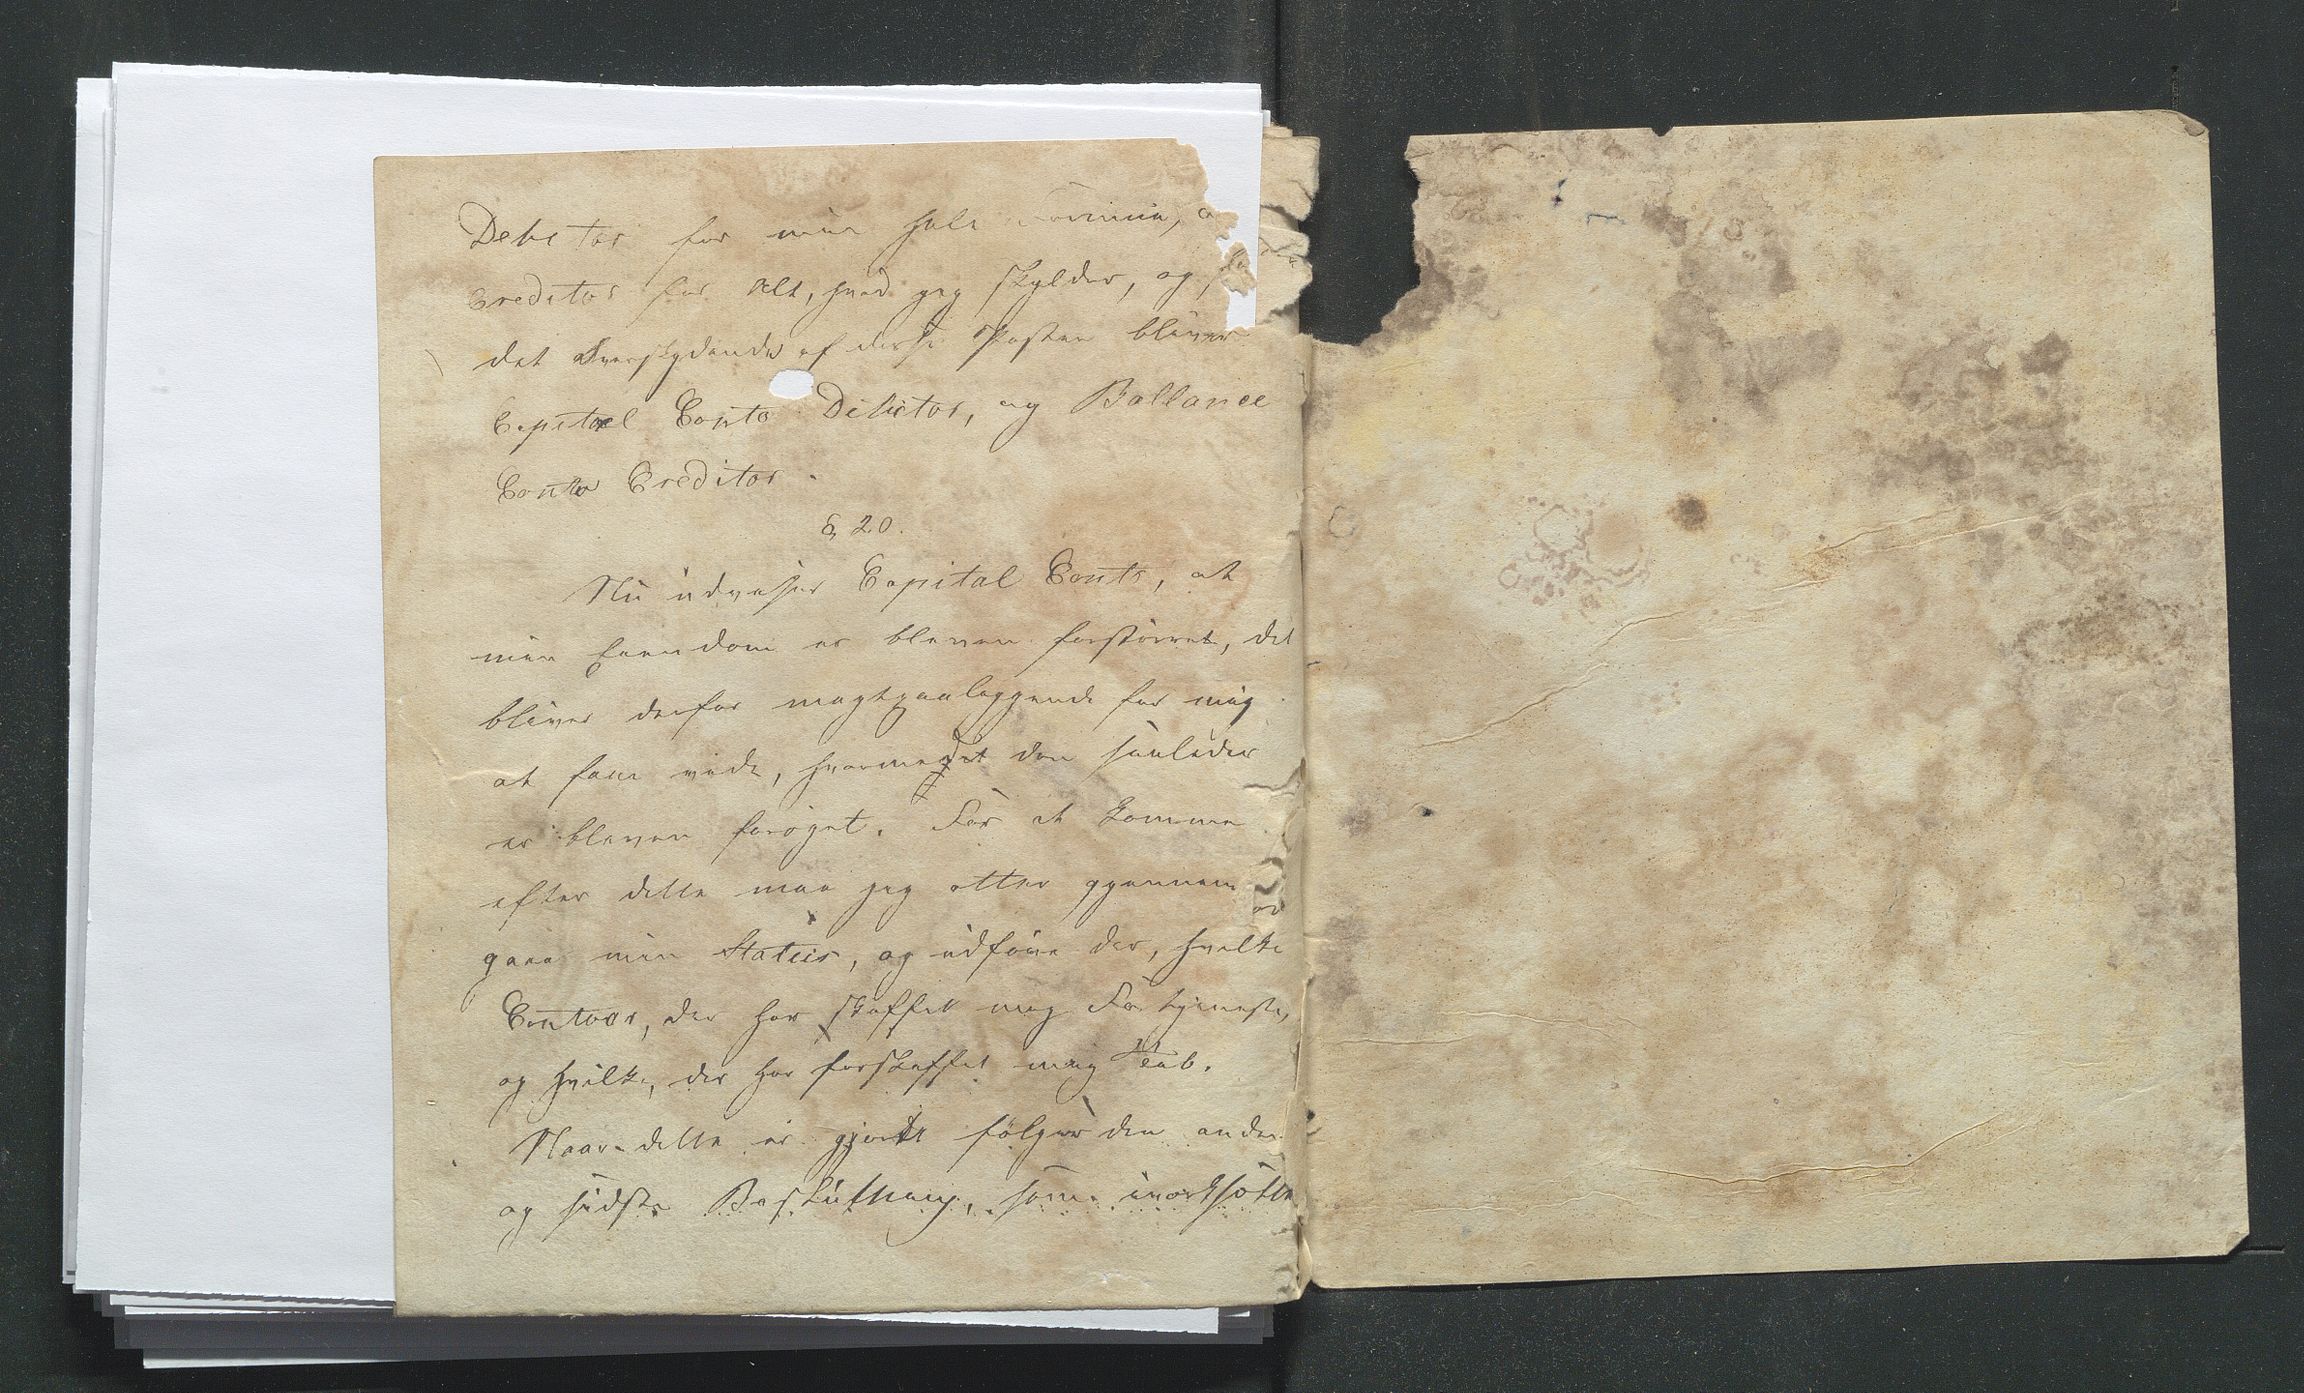 Debetor for min hele Formue, o
Creditor for Alt, hvad jeg skylder, og
det Overskydende af disse Poster bliver
Capital Conto Debetor, og Ballance
Conto Creditor.
§ 20.
Nu udviser Capital Conto, at
min Eiendom er bleven forstörret, det
bliver derfor magtpaaliggende for mig
at faae vide, hvormedet den saaledes
er bleven foröget. For at komme
efter dette maa jeg atter gjennem
gaae min Status, og udföre der, hvilke
Contoer, der har skaffet mig Fortjeneste,
og hvilke, der har forskaffet mig Tab.
Naar dette er gjort fölger den anden
og sidste Beslutning, som iværksætte